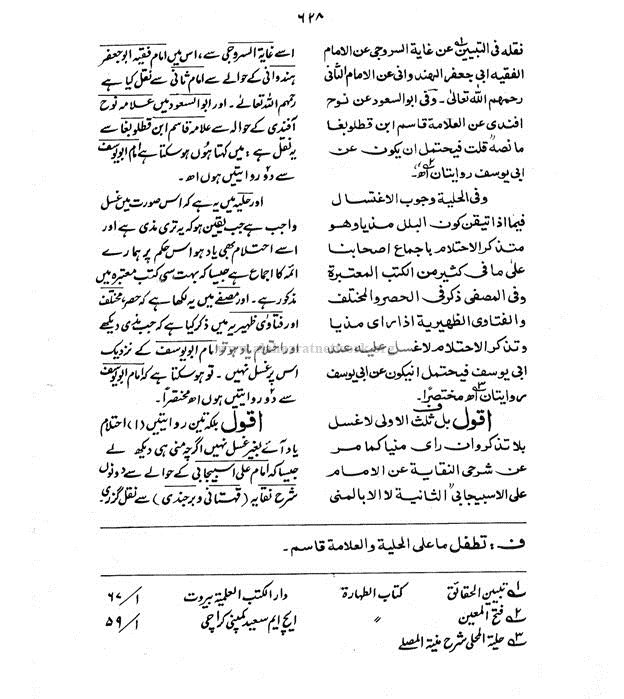 ۶۲۸
نقله فی التبیین عن غایة السروجی عن الامام
الفقیه ابی جعفر الهندوانی عن الامام الثانی
رحمهم الله تعالٰی۔ وفی ابو السعود عن نوح
افندی عن العلامة قاسم ابن قطلوبغا
ما نصه قلت فیحتمل ان یکون عن
ابی یوسف روایتان اھ۔
وفی الحلیة وجوب الاغتسال
فیما اذا تیقن کون البلل مذیا وهو
متذکر الاحتلام باجماع اصحابنا
علی ما فی کثیر من الکتب المعتبرة
وفی المصفی ذکر فی الحصر والمختلف
والفتاوی الظهیریة اذا رای مذیا
وتذکر الاحتلام لاغسل علیه عند
ابی یوسف فیحتمل انیکون عن ابی یوسف
روایتان اھ مختصرًا۔
اقول بل ثلث الاولی لا غسل
بلا تذکر وان رای منیا کما مر
عن شرحی النقایة عن الامام
علی الاسبیجابی الثانیة لا الا بالمنی
اسے غایۃ السروجی سے، اس میں امام فقیہ ابوجعفر
ہندوانی کے حوالے سے امام ثانی سے نقل کیا ہے
رحمہم اللہ تعالٰی۔ اور ابوالسعود میں علامہ نوح
آفندی کے حوالہ سے علامہ قاسم ابن قطلوبغا سے
یہ نقل ہے: میں کہتا ہُوں ہوسکتا ہے امام ابویوسف
سے دو روایتیں ہوں اھ۔
اور حلیہ میں یہ ہے کہ اس صورت میں غسل
واجب ہے جب یقین ہو کہ یہ تری مذی ہے اور
اسے احتلام بھی یاد ہو اس حکم پر ہمارے
ائمہ کا اجماع ہے جیسا کہ بہت سی کتب معتبرہ میں
مذکور ہے۔ اور مصفٰے میں یہ لکھا ہے کہ حصر، مختلف
اور فتاوٰی ظہیریہ میں ذکر کیا ہے کہ جب مذی دیکھے
اور احتلام یاد ہو تو امام ابویوسف کے نزدیک
اس پر غسل نہیں۔ تو ہوسکتا ہے کہ امام ابویوسف
سے دو روایتیں ہوں اھ مختصراً۔
اقول بلکہ تین روایتیں (۱) احتلام
یاد آئے بغیر غسل نہیں اگرچہ منی ہی دیکھ لے
جیسا کہ امام علی اسبیجابی کے حوالے سے دونوں
شرح نقایہ (قہستانی و برجندی) سے نقل گزری
ف: تطفل ما علی الحلیة والعلامة قاسم۔
۱؎ تبیین الحقائق کتاب الطہارۃ دار الکتب العلمیۃ بیروت ۱/ ۶۷
۲؎ فتح المعین " ایچ ایم سعید کمپنی کراچی ۱/ ۵۹
۳؎ حلیۃ المحلی شرح منیۃ المصلی